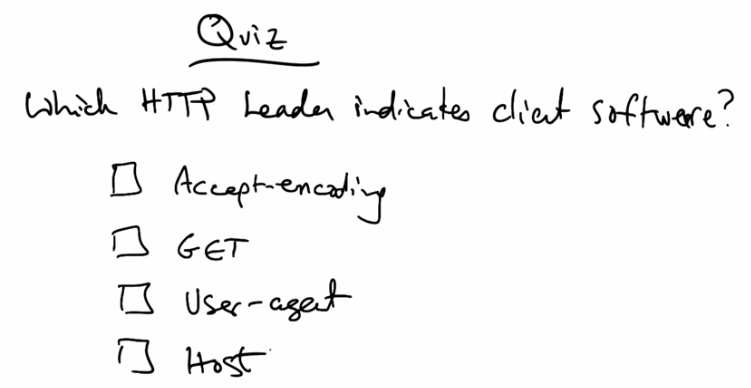 Quiz
Which HTTP header indicates client software?
Accept-encoding
GET
User-agent
Host